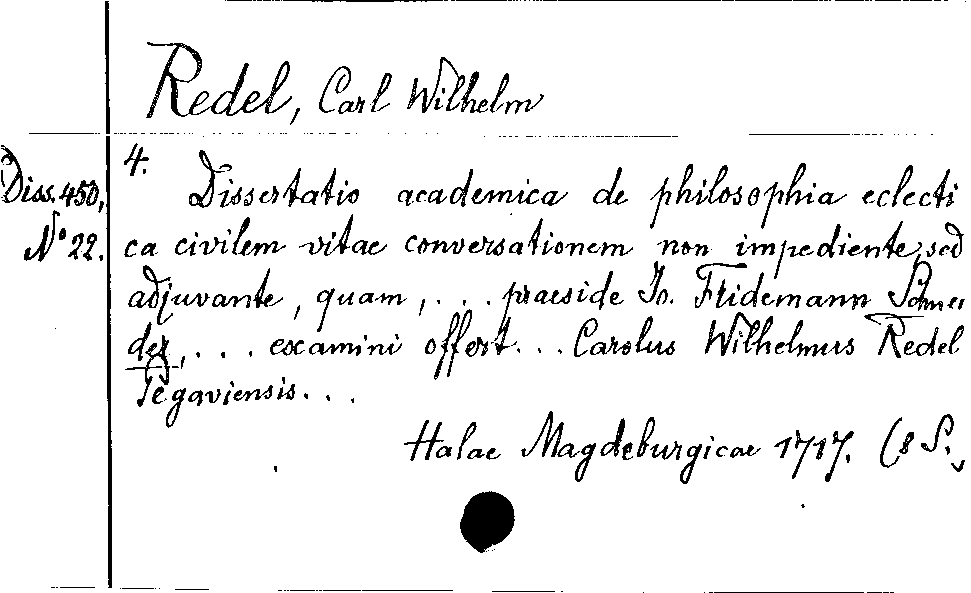 Redel, Carl Wilhelm
4.
Diss. 450,
No 22.
Dissertatio academica de philosophia eclecti
ca civilem vitae conversationem non impediente, sed
adjuvante, quam, ... praeside Jo. Fridemann Schnei
der, ... examini offert... Carolus Wilhelmus Redel
Pegaviensis...
Halae Magdeburgicae 1717. (8 S.)